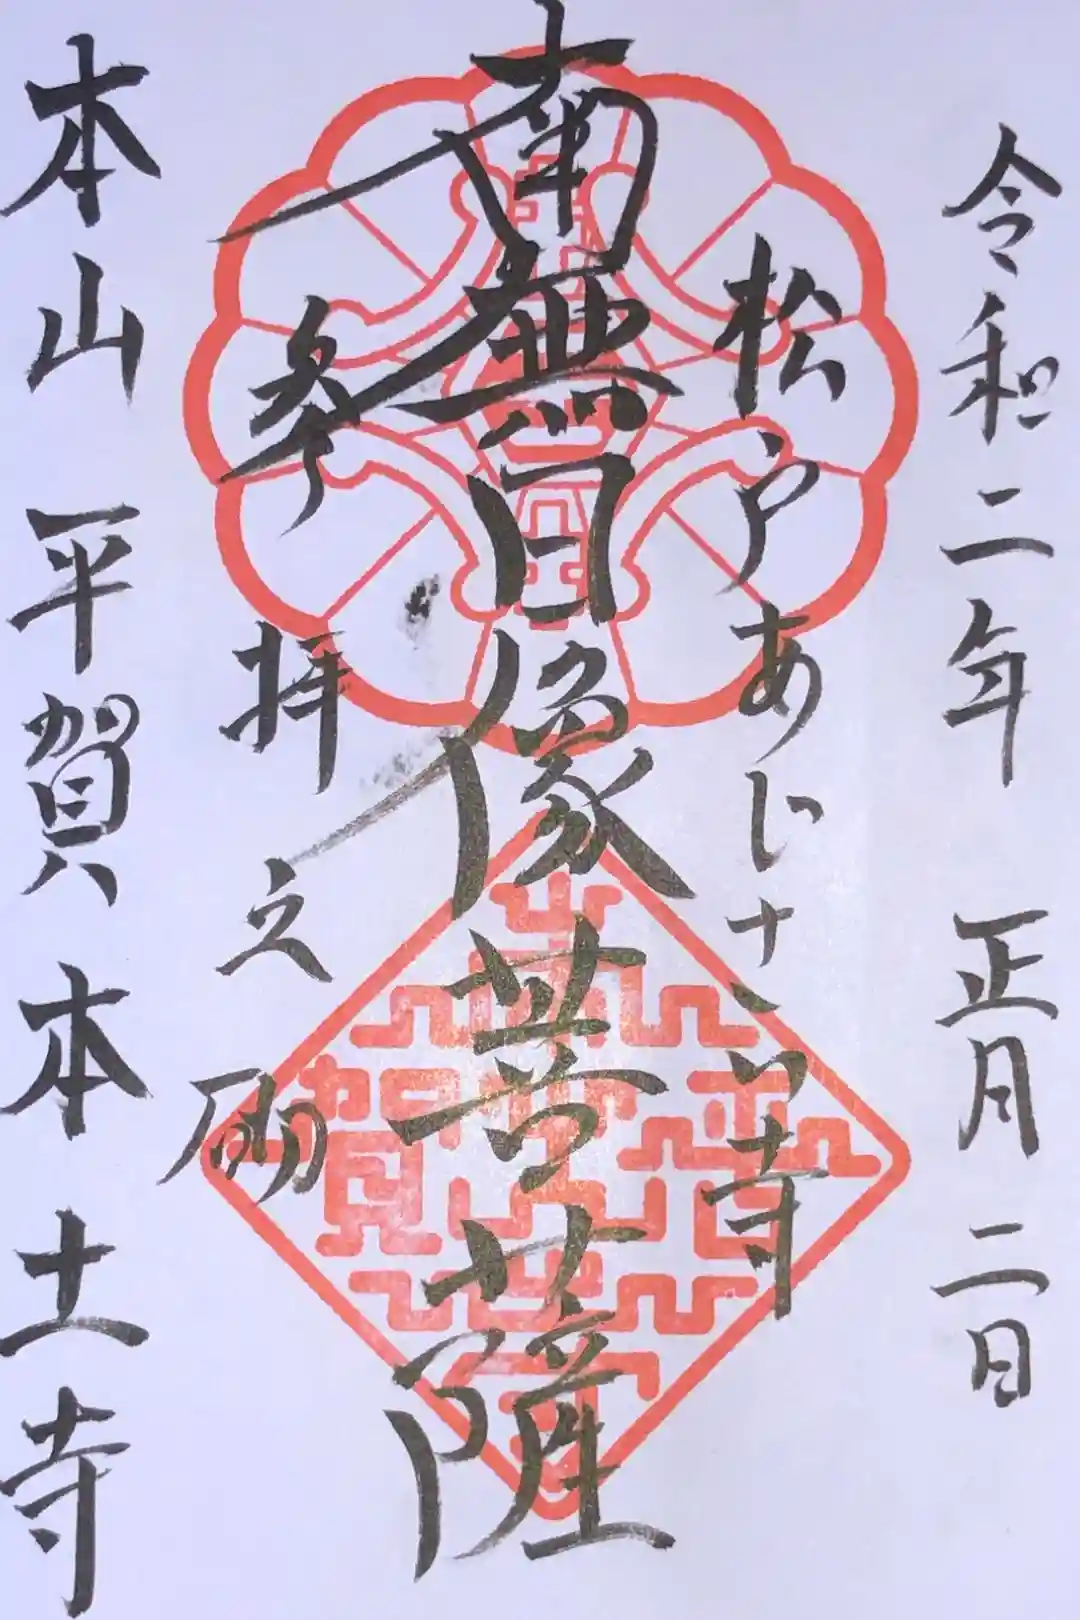 令和二年 正月二日
松戸あじさい寺
南無日像菩薩
参拝之砌
本山 平賀 本土寺